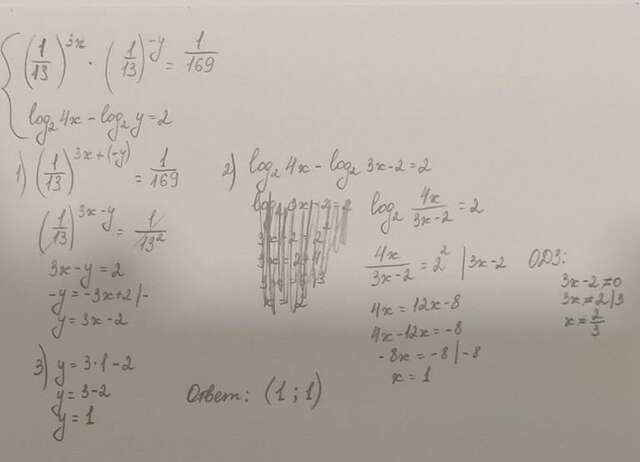 (1/13)^3x · (1/13)^-y = 1/169
log₂4x - log₂y = 2
1) (1/13)^3x+(-y) = 1/169
(1/13)^3x-y = 1/13²
3x-y = 2
-y = -3x+2 |-
y = 3x-2
2) log₂4x - log₂3x-2 = 2
log₂ 4x/3x-2 = 2
4x/3x-2 = 2² |3x-2
4x = 12x-8
4x-12x = -8
-8x = -8 |-8
x = 1
ОДЗ:
3x-2≠0
3x≠2 |3
x≠2/3
3) y = 3·1-2
y = 3-2
y = 1
Ответ: (1;1)